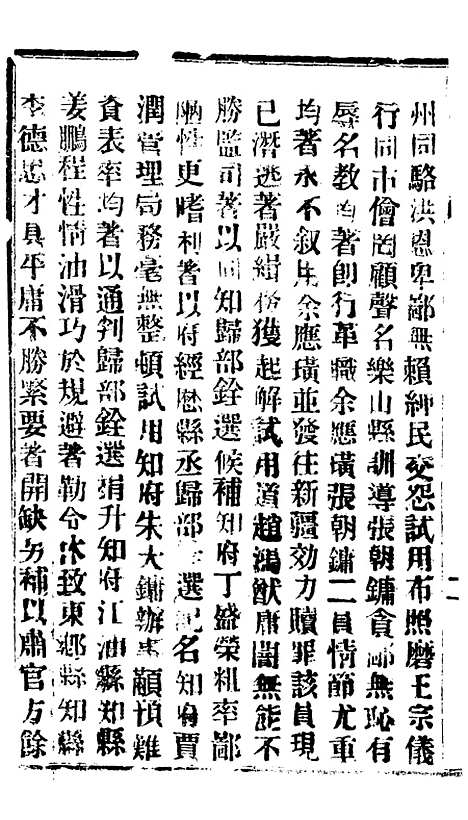 州同駱洪恩卑鄙無賴紳民交怨試用布照磨王宗儀
行同市儈罔顧聲名樂山縣訓導張朝鏞貪鄙無恥有
辱名教均著卽行革職余應璜張朝鏞二員情節尤重
均著永不叙用余應璜並發往新疆効力贖罪該員現
已潛逃著嚴緝務獲起解試用道趙鴻猷庸闇無能不
勝監司著以同知歸部銓選候補知府丁盛榮粗率鄙
陋性更嗜利著以府經歷縣丞歸部選記名知府賈
潤管理局務毫無整頓試用知府朱大鏞辦事顢頇難
資表率均著以通判歸部銓選捐升知府江油縣知縣
姜鵬程性情油滑巧於規避著勒令休致東鄉縣知縣
李德忠才具平庸不勝緊要著開缺另補以肅官方餘